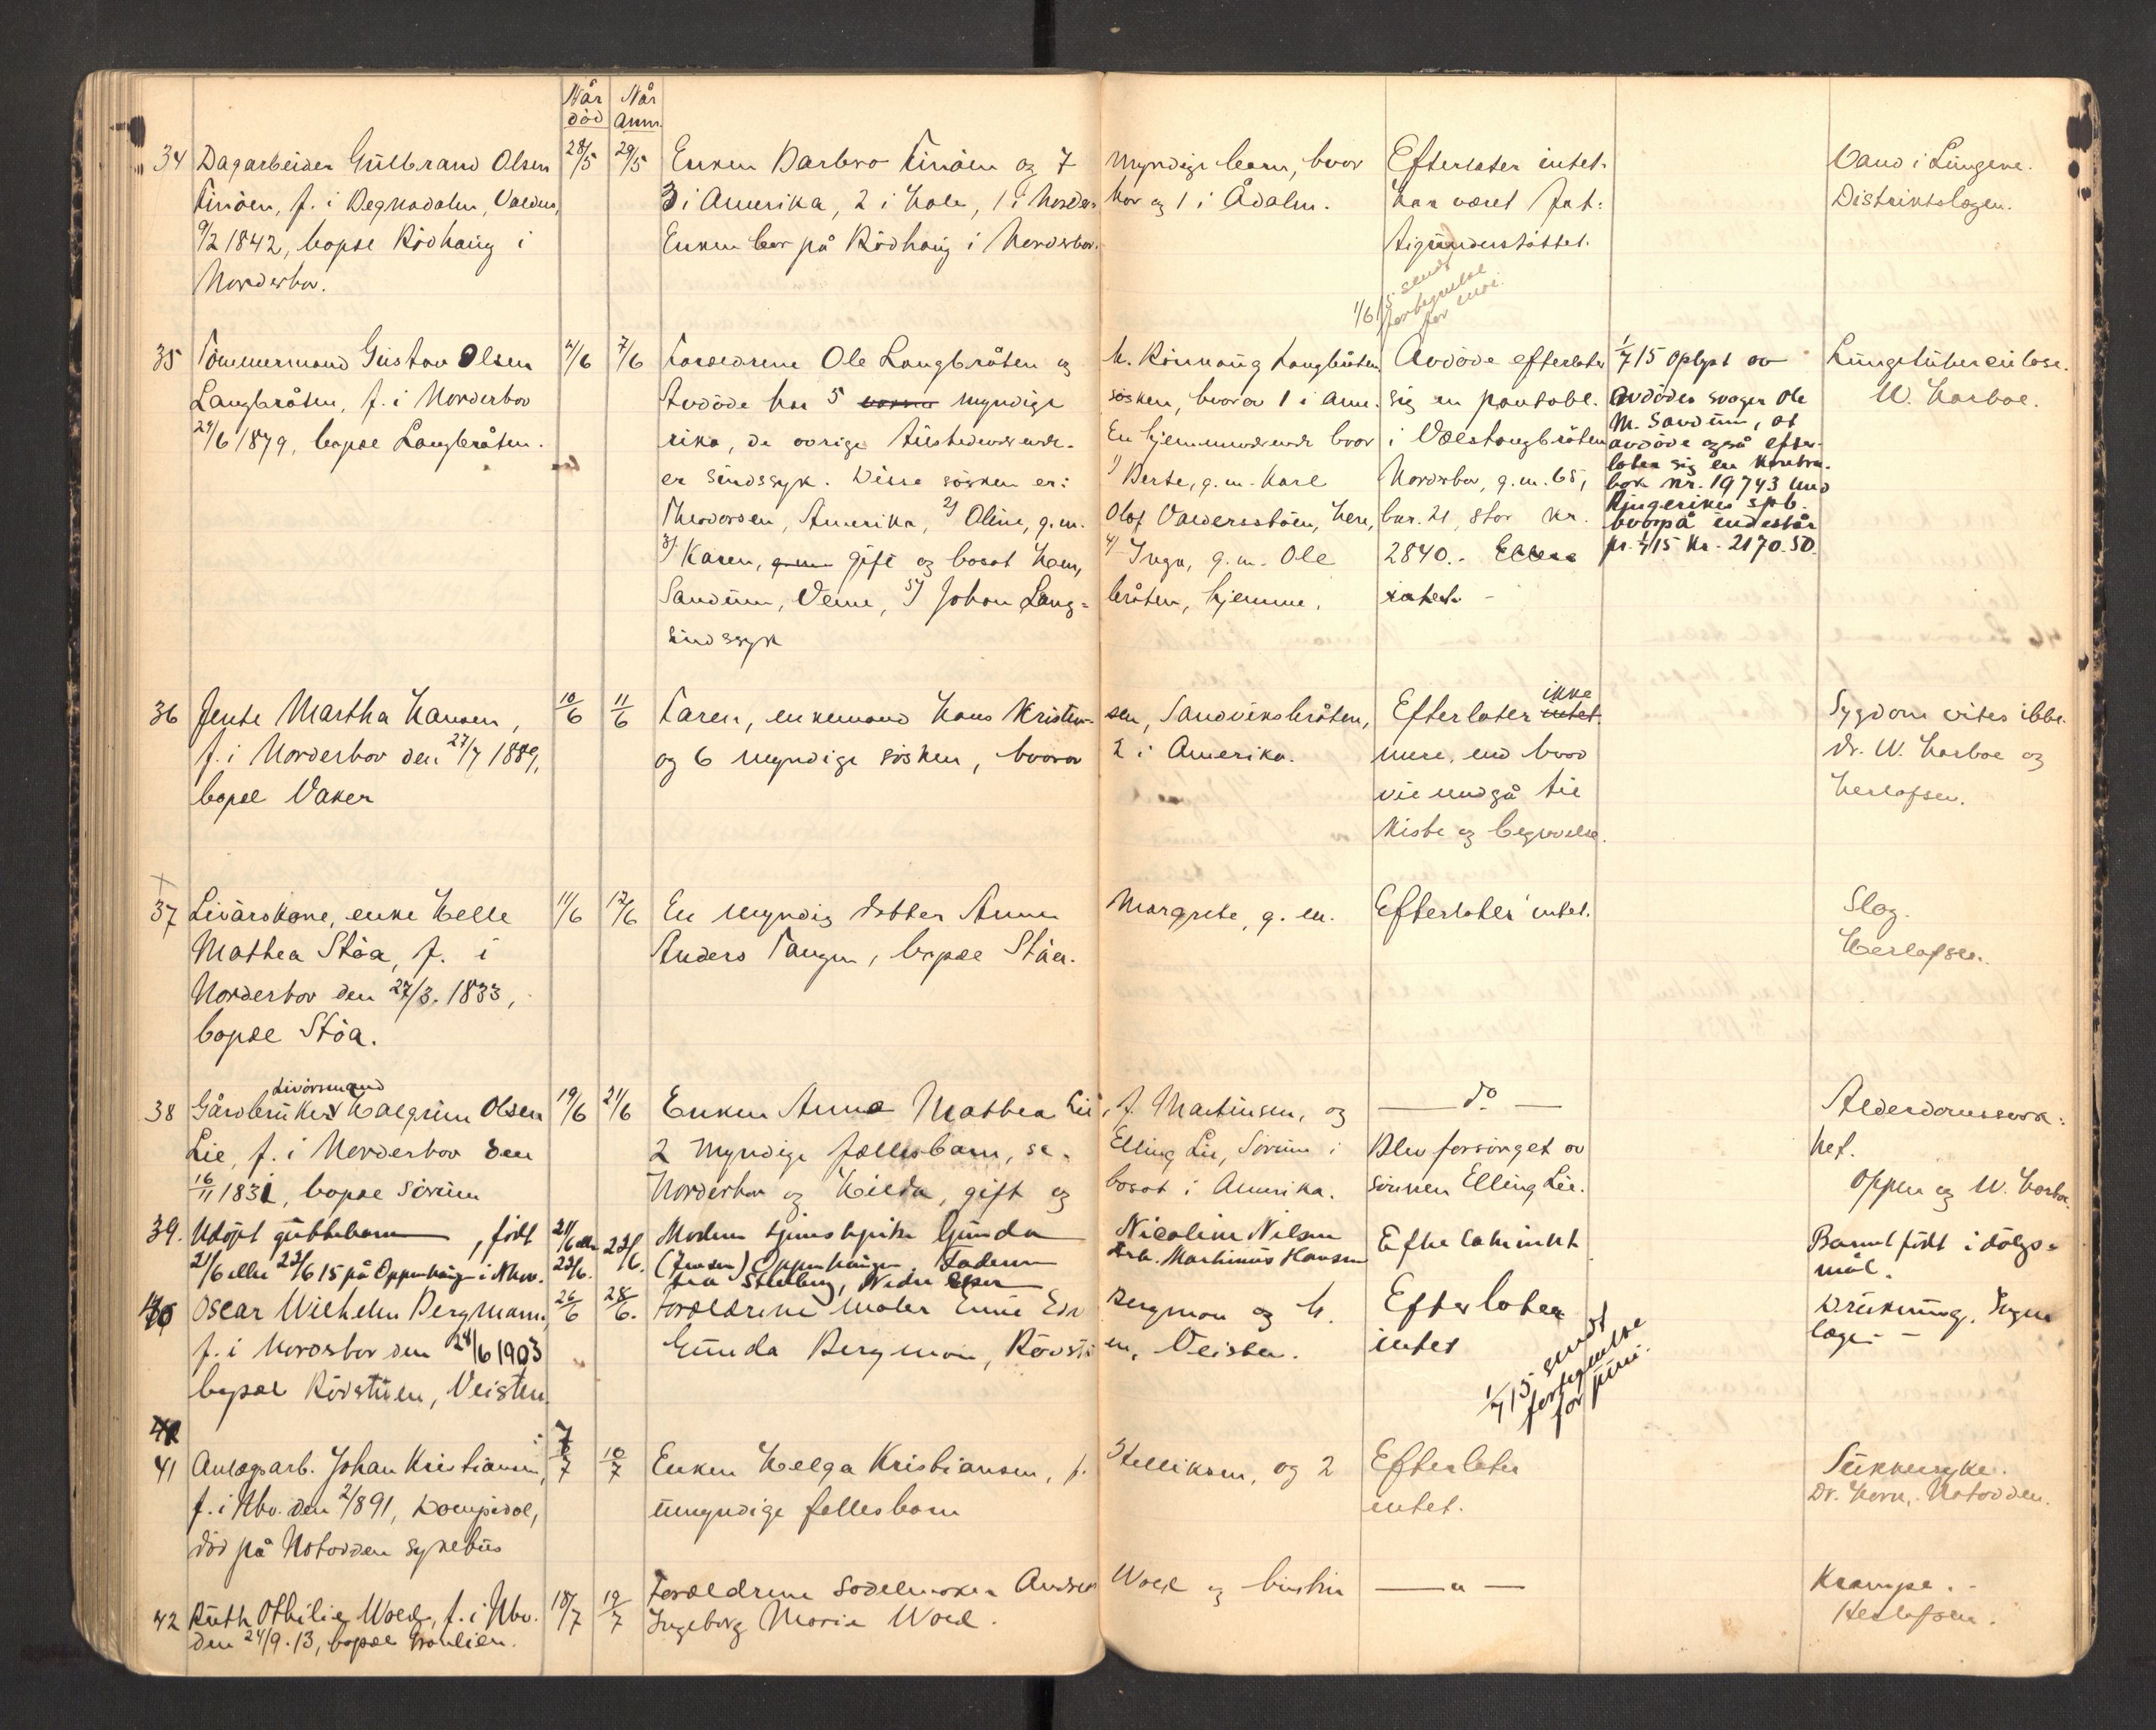 Når død
Når Anm.
34 Dagarbeider Gulbrand Olsen 28/5 29/5 Enken Barbro Finöen og 7 myndige barn, hvor Efterlater intet. Vand i Lungene.
Finöen, f. i Begnadalen, Valdres, 3 i Amerika, 2 i Hole, 1 i Norder- hov og 1 i Ådalen. Har været fat- Distriktslægen.
9/2 1842, bopæl Rödhaug i Enken bor på Rödhaug i Norderhov. tigunderstöttet.
Norderhov.
1/6 15 sendt fortegnelse for mai.
35 Tömmermand Gustav Olsen 2/6 7/6 Forældrene Ole Langbråten og h. Rönnaug Langbråten Avdöde efterlater 1/7 15 Oplyst av Lungetuberculose.
Langbråten, f. i Norderhov Avdöde har 5 myndige sösken, hvorav 1 i Ame- sig en pantobl. avdödes svoger Ole W. Harboe.
29/6 1879, bopæl Langbråten. rika, de övrige tilstedeværende. En hjemmeværende hvor i Vælstangbråten M. Sandum, at
er sindssyk. Disse sösken er: 1) Berte, g.m. Karl Norderhov, g.nr. 65, avdöde også efter-
Theodorsen, Amerika, 2) Oline, g.m. Olof Valdersstöen, Here, bnr. 21, stor kr. later sig en kontra-
3) Karen, gift og bosat Hoen, 4) Inga, g.m. Ole 2840.- Ellers bok nr. 19743 med
Sandum, Veme, 5) Johan Lang- bråten, hjemme, intet - Ringerikes spb.
sindssyk hvorpå indestår
pr. 1/7 15 kr. 2170.50
36 Jente Martha Hansen, 10/6 11/6 Faren, enkemand Hans Kristen- sen, Sandviksbråten, Efterlater ikke Sygdom vites ikke.
f. i Norderhov den 27/7 1889, og 6 myndige sösken, hvorav 2 i Amerika. mere, end hvad Dr. W. Harboe og
bopæl Vaker vil medgå til Herlofsen.
kiste og begravelse.
37 Livörskone, enke Helle 11/6 12/6 En myndig datter Anne Margrete, g.m. Efterlater intet. Slag.
Mathea Stöa, f. i Anders Tangen, bopæl Stöa. Herlofsen.
Norderhov den 27/3. 1833,
bopæl Stöa.
38 Gårdbruker Livörsmand Halgrim Olsen 19/6 21/6 Enken Anne Mathea Lie, f. Martinsen, og — do — Alderdomssvak-
Lie, f. i Norderhov den 2 myndige fællesbarn, se. Elling Lie, Sörum i Blev forsörget av het.
16/11 1831, bopæl Sörum Norderhov og Hilda, gift og bosat i Amerika. sönnen Elling Lie. Oppen og W. Harboe
39. Udöpt guttebarn, födt 21/6 eller 22/6. 22/6. Moderen tjenestepike Gunda Nicoline Nilsen Efterlater intet Barnet födt i dölgs-
21/6 eller 22/6 15 på Oppenhaugen i Nhov. (Jensen) Oppenhaugen. Faderen Arb. Martinius Hansen mål.
fra Stenberg, Nedre Eker
40 Oscar Wilhelm Bergmann, 26/6 28/6. Forældrene maler Emil Edv. Bergman og h. Efterlater Drukning. Ingen
f. i Norderhov den 24/6 1903 Gunda Bergman, Rödstu en, Veisten. intet læge -
bopæl Rödstuen, Veisten.
1/7 15 sendt fortegnelse for juni.
41 Anlægsarb. Johan Kristiansen, 7/7 10/7 Enken Helga Kristiansen, f. Stelliksen, og 2 Efterlater Sukkersyke.
f. i Nhv. den 2/891, död på Notodden sykehus umyndige fellesbarn intet. Dr. Horn, Notodden.
42 Ruth Othilie Wold, f. i Nhv. 18/7 19/7 Forældrene Sadelmaker Andreas Wold og hustru — " — Krampe. -
den 24/9. 13, bopæl Granlien. Ingeborg Marie Wold. Herlofsen.